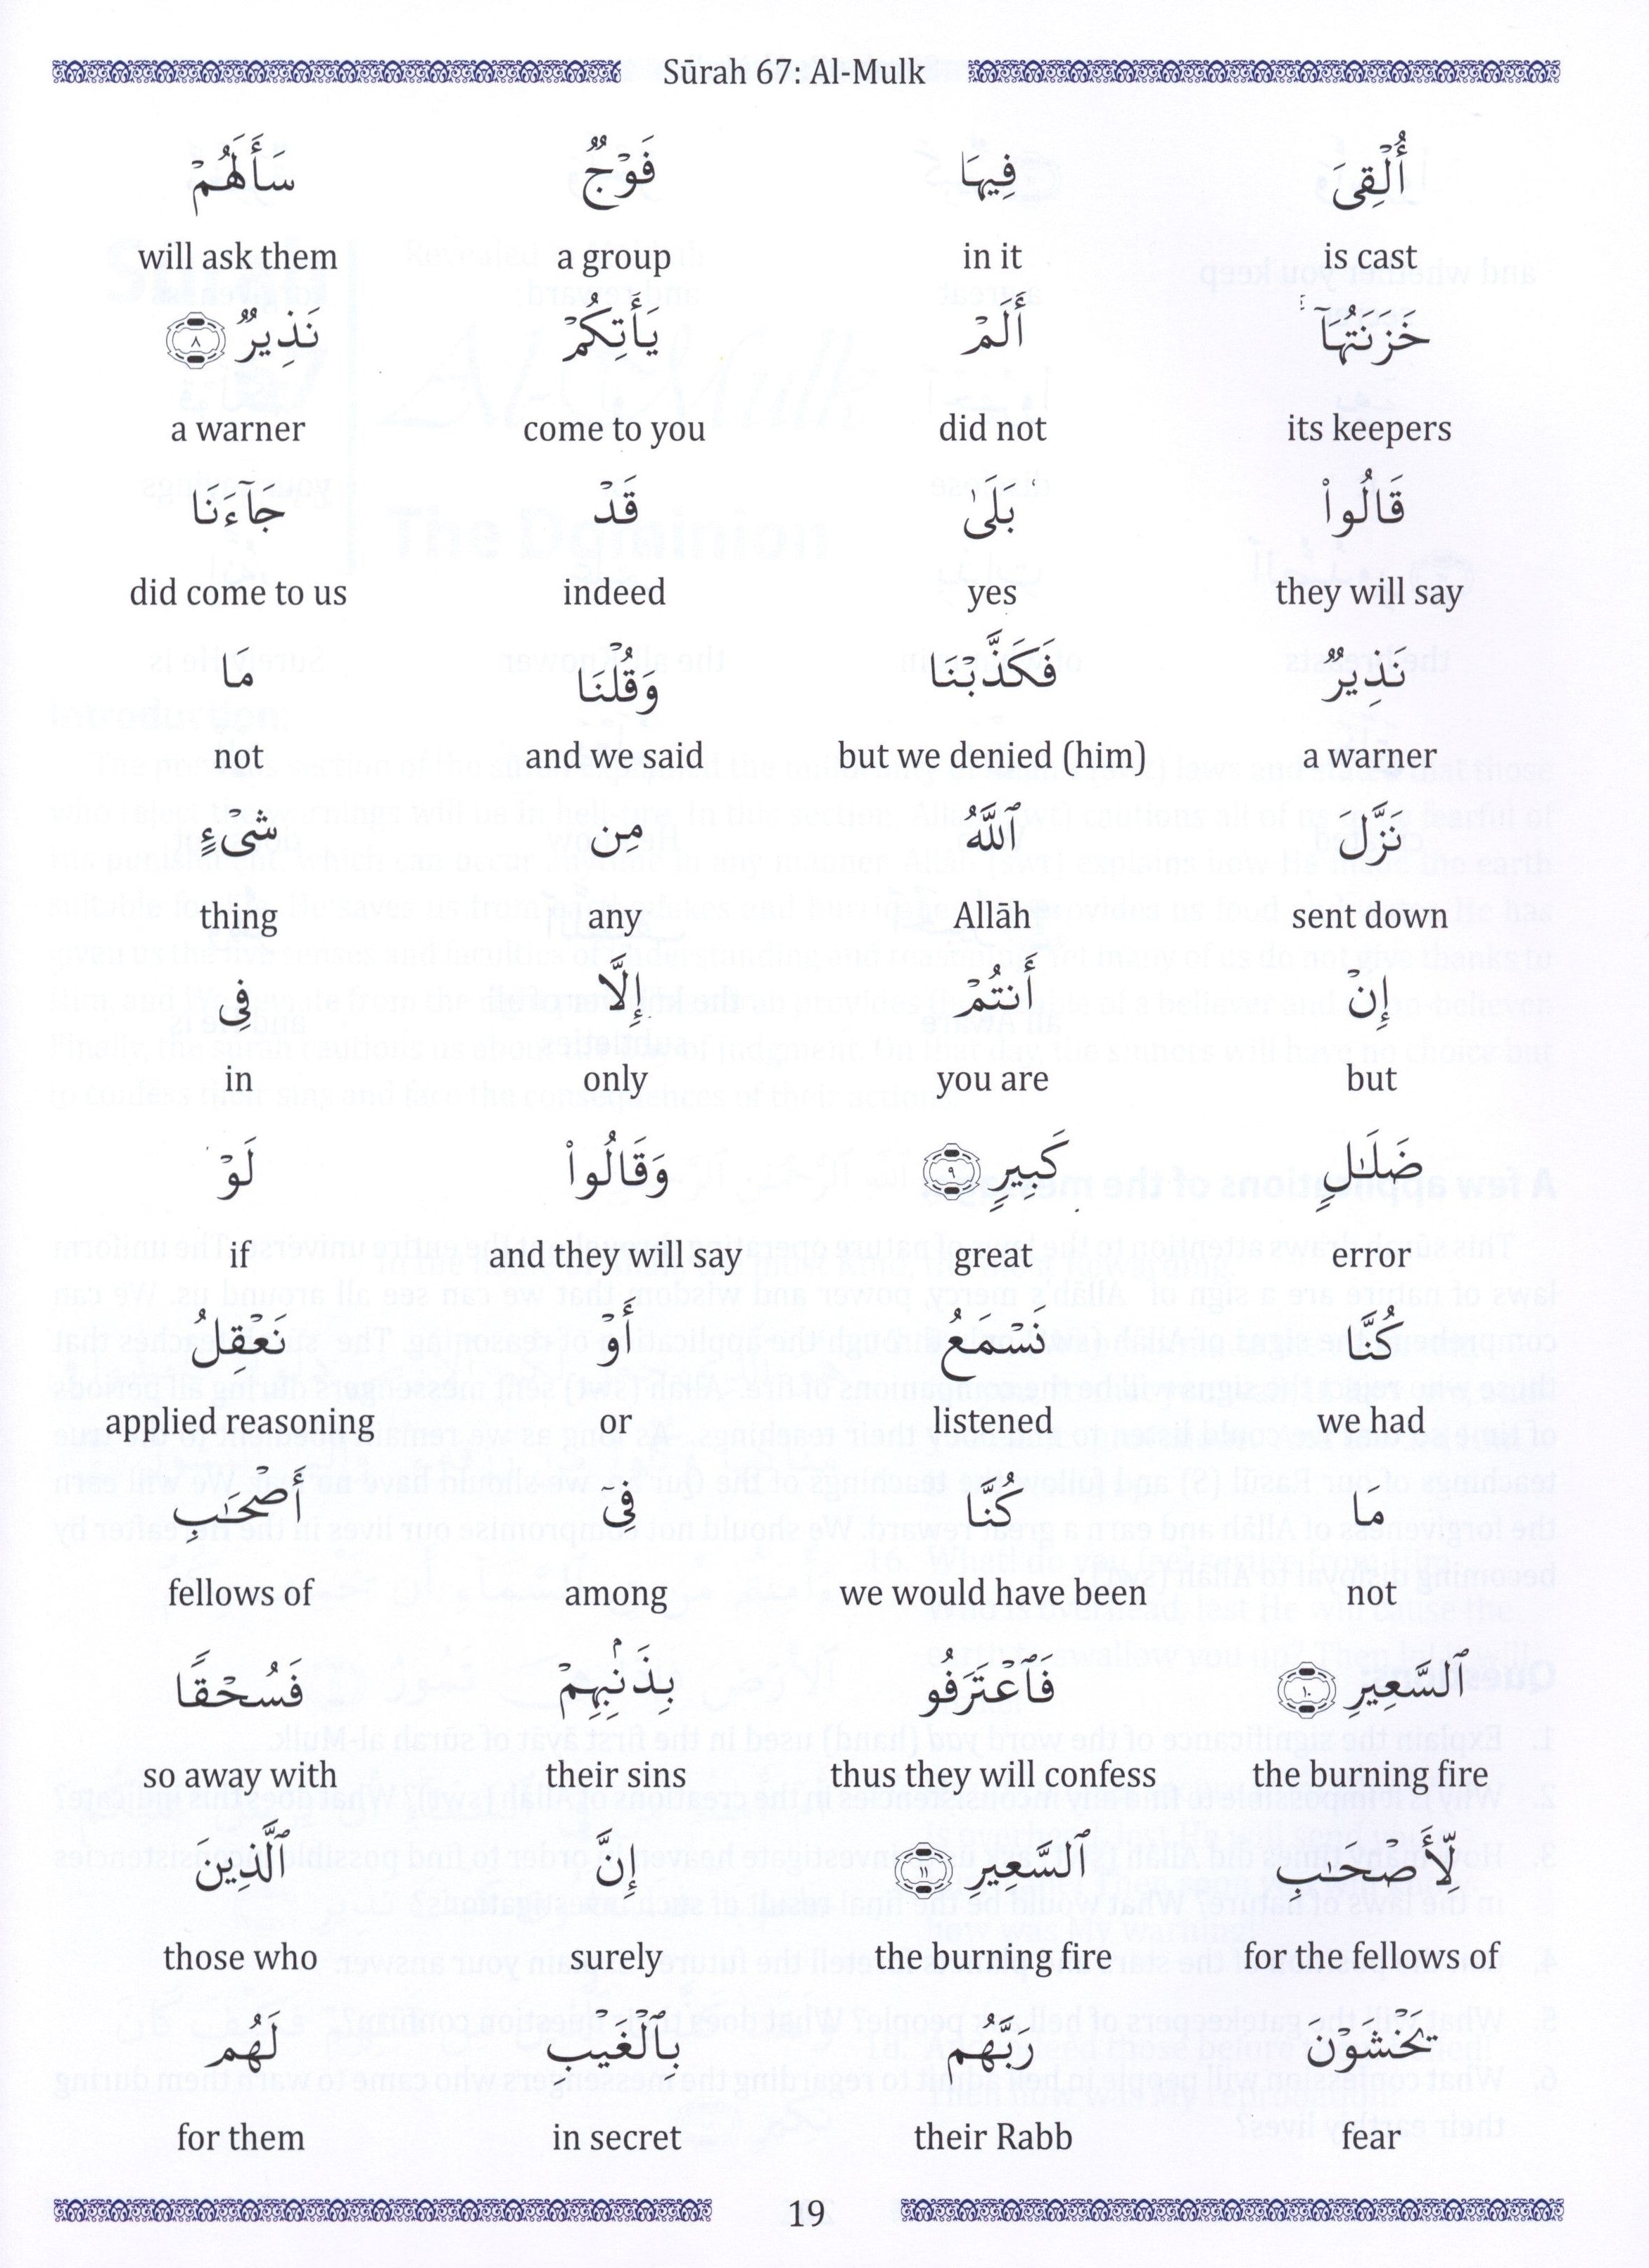 Sūrah 67: Al-Mulk
أُلْقِىَ فِيهَا فَوْجٌ سَأَلَهُمْ
is cast in it a group will ask them
خَزَنَتُهَآ أَلَمْ يَأْتِكُمْ نَذِيرٌ ٨
its keepers did not come to you a warner
قَالُوا۟ بَلَىٰ قَدْ جَآءَنَا
they will say yes indeed did come to us
نَذِيرٌ فَكَذَّبْنَا وَقُلْنَا مَا
a warner but we denied (him) and we said not
نَزَّلَ ٱللَّهُ مِن شَىْءٍ
sent down Allāh any thing
إِنْ أَنتُمْ إِلَّا فِى
but you are only in
ضَلَـٰلٍ كَبِيرٍ ٩ وَقَالُوا۟ لَوْ
error great and they will say if
كُنَّا نَسْمَعُ أَوْ نَعْقِلُ
we had listened or applied reasoning
مَا كُنَّا فِىٓ أَصْحَـٰبِ
not we would have been among fellows of
ٱلسَّعِيرِ ١٠ فَٱعْتَرَفُوا بِذَنۢبِهِمْ فَسُحْقًا
the burning fire thus they will confess their sins so away with
لِّأَصْحَـٰبِ ٱلسَّعِيرِ ١١ إِنَّ ٱلَّذِينَ
for the fellows of the burning fire surely those who
يَخْشَوْنَ رَبَّهُم بِٱلْغَيْبِ لَهُم
fear their Rabb in secret for them
19